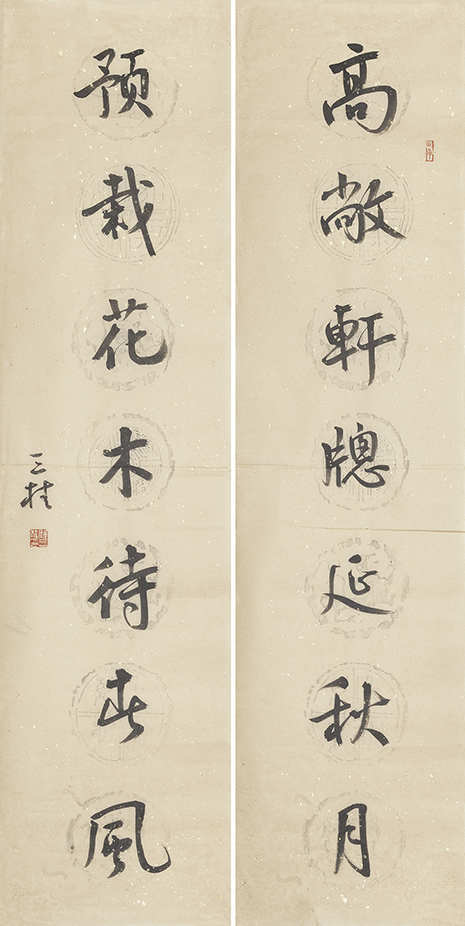 高敞軒牕延秋月
預栽花木待春風
三桂